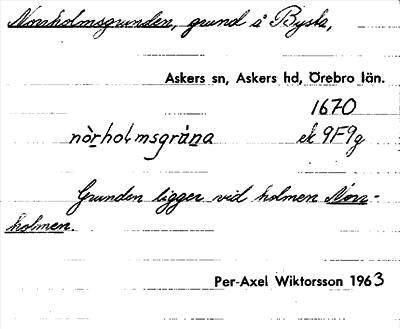 Norrholmsgrunden, grund i Bysta,
Askers sn, Askers hd, Örebro län.
1670
nòrholmsgruna ek 9F9g
Grunden ligger vid holmen Norr-
holmen.
Per-Axel Wiktorsson 1963